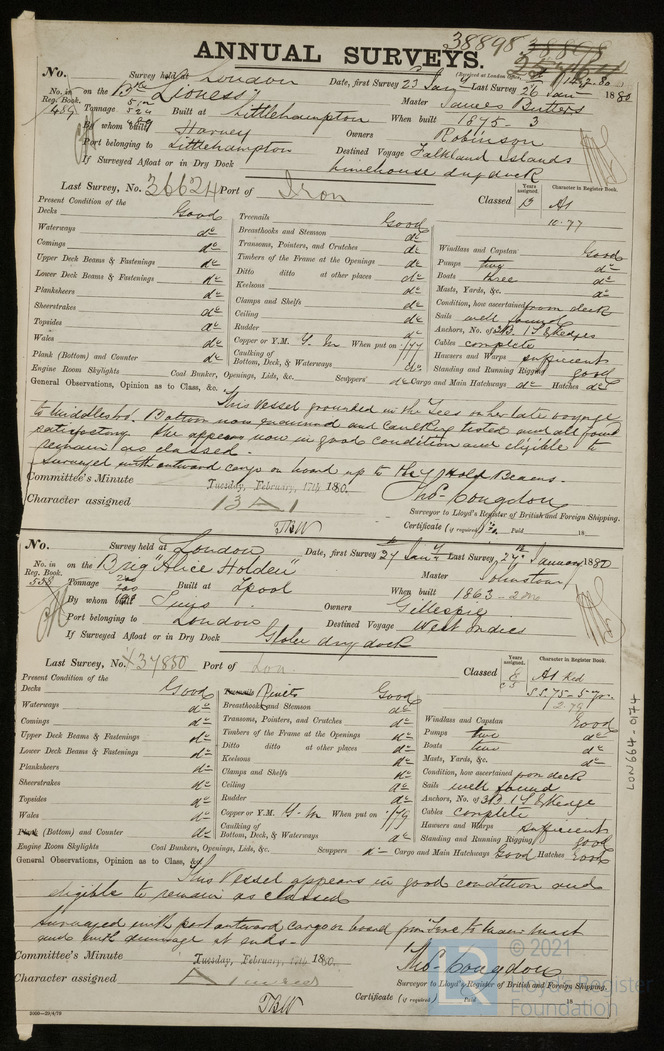 38898
ANNUAL SURVEYS.
No. Survey held at London Date, first Survey 23 Jany Last Survey 26 Jany 1880
(Received at London Office
No. in Reg. Book. on the Bkn "Lioness" Master James Butters
489 Tonnage Built at Littlehampton When built 1875 - 3
By whom built Harvey Owners Robinson
Port belonging to Littlehampton Destined Voyage Falkland Islands
If Surveyed Afloat or in Dry Dock Limehouse dry dock
Last Survey, No. 36624 Port of Iron Classed Years assigned. 13 Character in Register Book. A1
10.77
Present Condition of the
Decks Good
Waterways do
Comings do
Upper Deck Beams & Fastenings do
Lower Deck Beams & Fastenings do
Planksheers do
Sheerstrakes do
Topsides do
Wales do
Plank (Bottom) and Counter do
Treenails Good
Breasthooks and Stemson do
Transoms, Pointers, and Crutches do
Timbers of the Frame at the Openings do
Ditto ditto at other places do
Keelsons do
Clamps and Shelfs do
Ceiling do
Rudder do
Copper or Y.M. Y.M. When put on /77
Caulking of Bottom, Deck, & Waterways do
Windlass and Capstan Good
Pumps two do
Boats three do
Masts, Yards, &c. do
Condition, how ascertained from deck
Sails well found
Anchors, No. of 3B. 1S. & Kedges
Cables complete
Hawsers and Warps sufficient
Standing and Running Rigging good
Engine Room Skylights Coal Bunker, Openings, Lids, &c. Scuppers do Cargo and Main Hatchways do Hatches do
General Observations, Opinion as to Class, &c. This Vessel grounded in the Tees on her late voyage
to Middlesbro. Bottom now examined and caulking tested and all found
satisfactory. She appears now in good condition and eligible to
remain as classed.
Surveyed with outward cargo on board up to the Hold Beams.
Committee's Minute Tuesday, February 17th 1880. Thos. Congdon
Character assigned 13 A 1 Surveyor to Lloyd's Register of British and Foreign Shipping.
TBW Certificate (if required) Paid 18
No. Survey held at London Date, first Survey 27 Jany Last Survey 27th January 1880
No. in Reg. Book. on the Brig "Alice Holden" Master Johnstown
558 Tonnage 200 Built at Lpool When built 1863 - 2mo
By whom built Owners Gillespie
Port belonging to London Destined Voyage West Indies
If Surveyed Afloat or in Dry Dock Globe dry dock
Last Survey, No. 37850 Port of Lon Classed Years assigned. Character in Register Book. A1 Red
S.S. 75 - 5 yrs
2.79
Present Condition of the
Decks Good
Waterways do
Comings do
Upper Deck Beams & Fastenings do
Lower Deck Beams & Fastenings do
Planksheers do
Sheerstrakes do
Topsides do
Wales do
Plank (Bottom) and Counter do
Treenails Rivets Good
Breasthooks and Stemson do
Transoms, Pointers, and Crutches do
Timbers of the Frame at the Openings do
Ditto ditto at other places do
Keelsons do
Clamps and Shelfs do
Ceiling do
Rudder do
Copper or Y.M. Y.M. When put on /79
Caulking of Bottom, Deck, & Waterways do
Windlass and Capstan Good
Pumps two do
Boats two do
Masts, Yards, &c. do
Condition, how ascertained from deck
Sails well found
Anchors, No. of 3B. 1S. & Kedge
Cables complete
Hawsers and Warps sufficient
Standing and Running Rigging good
Engine Room Skylights Coal Bunkers, Openings, Lids, &c. Scuppers do Cargo and Main Hatchways Good Hatches Good
General Observations, Opinion as to Class, &c. This Vessel appears in good condition and
eligible to remain as classed
Surveyed with part outward cargo on board from Fore to Main mast
and with dunnage at ends.
Committee's Minute Tuesday, February 17th 1880. Thos. Congdon
Character assigned A Surveyor to Lloyd's Register of British and Foreign Shipping.
TBW Certificate (if required) Paid 18
2000—29/4/79
LON664-0174
LR © 2021
Lloyd's Register
Foundation